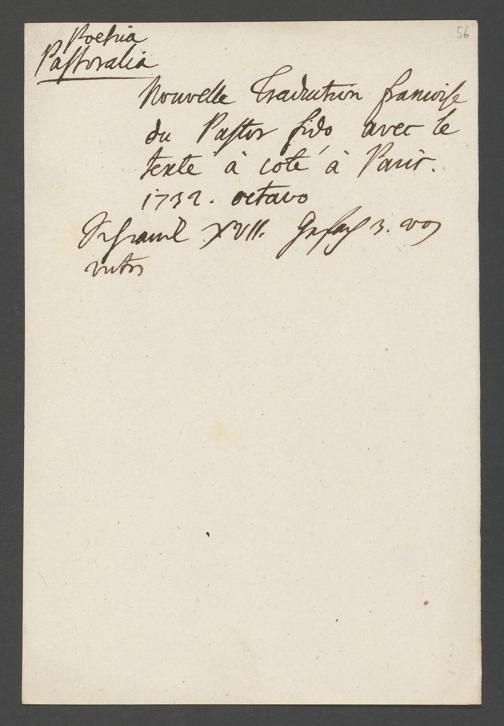 56
Poetica
Pastoralia
Nouvelle Traduction francoise
du Pastor fido avec le
texte à coté à Paris.
1732. octavo
XVII. 3. von
unten